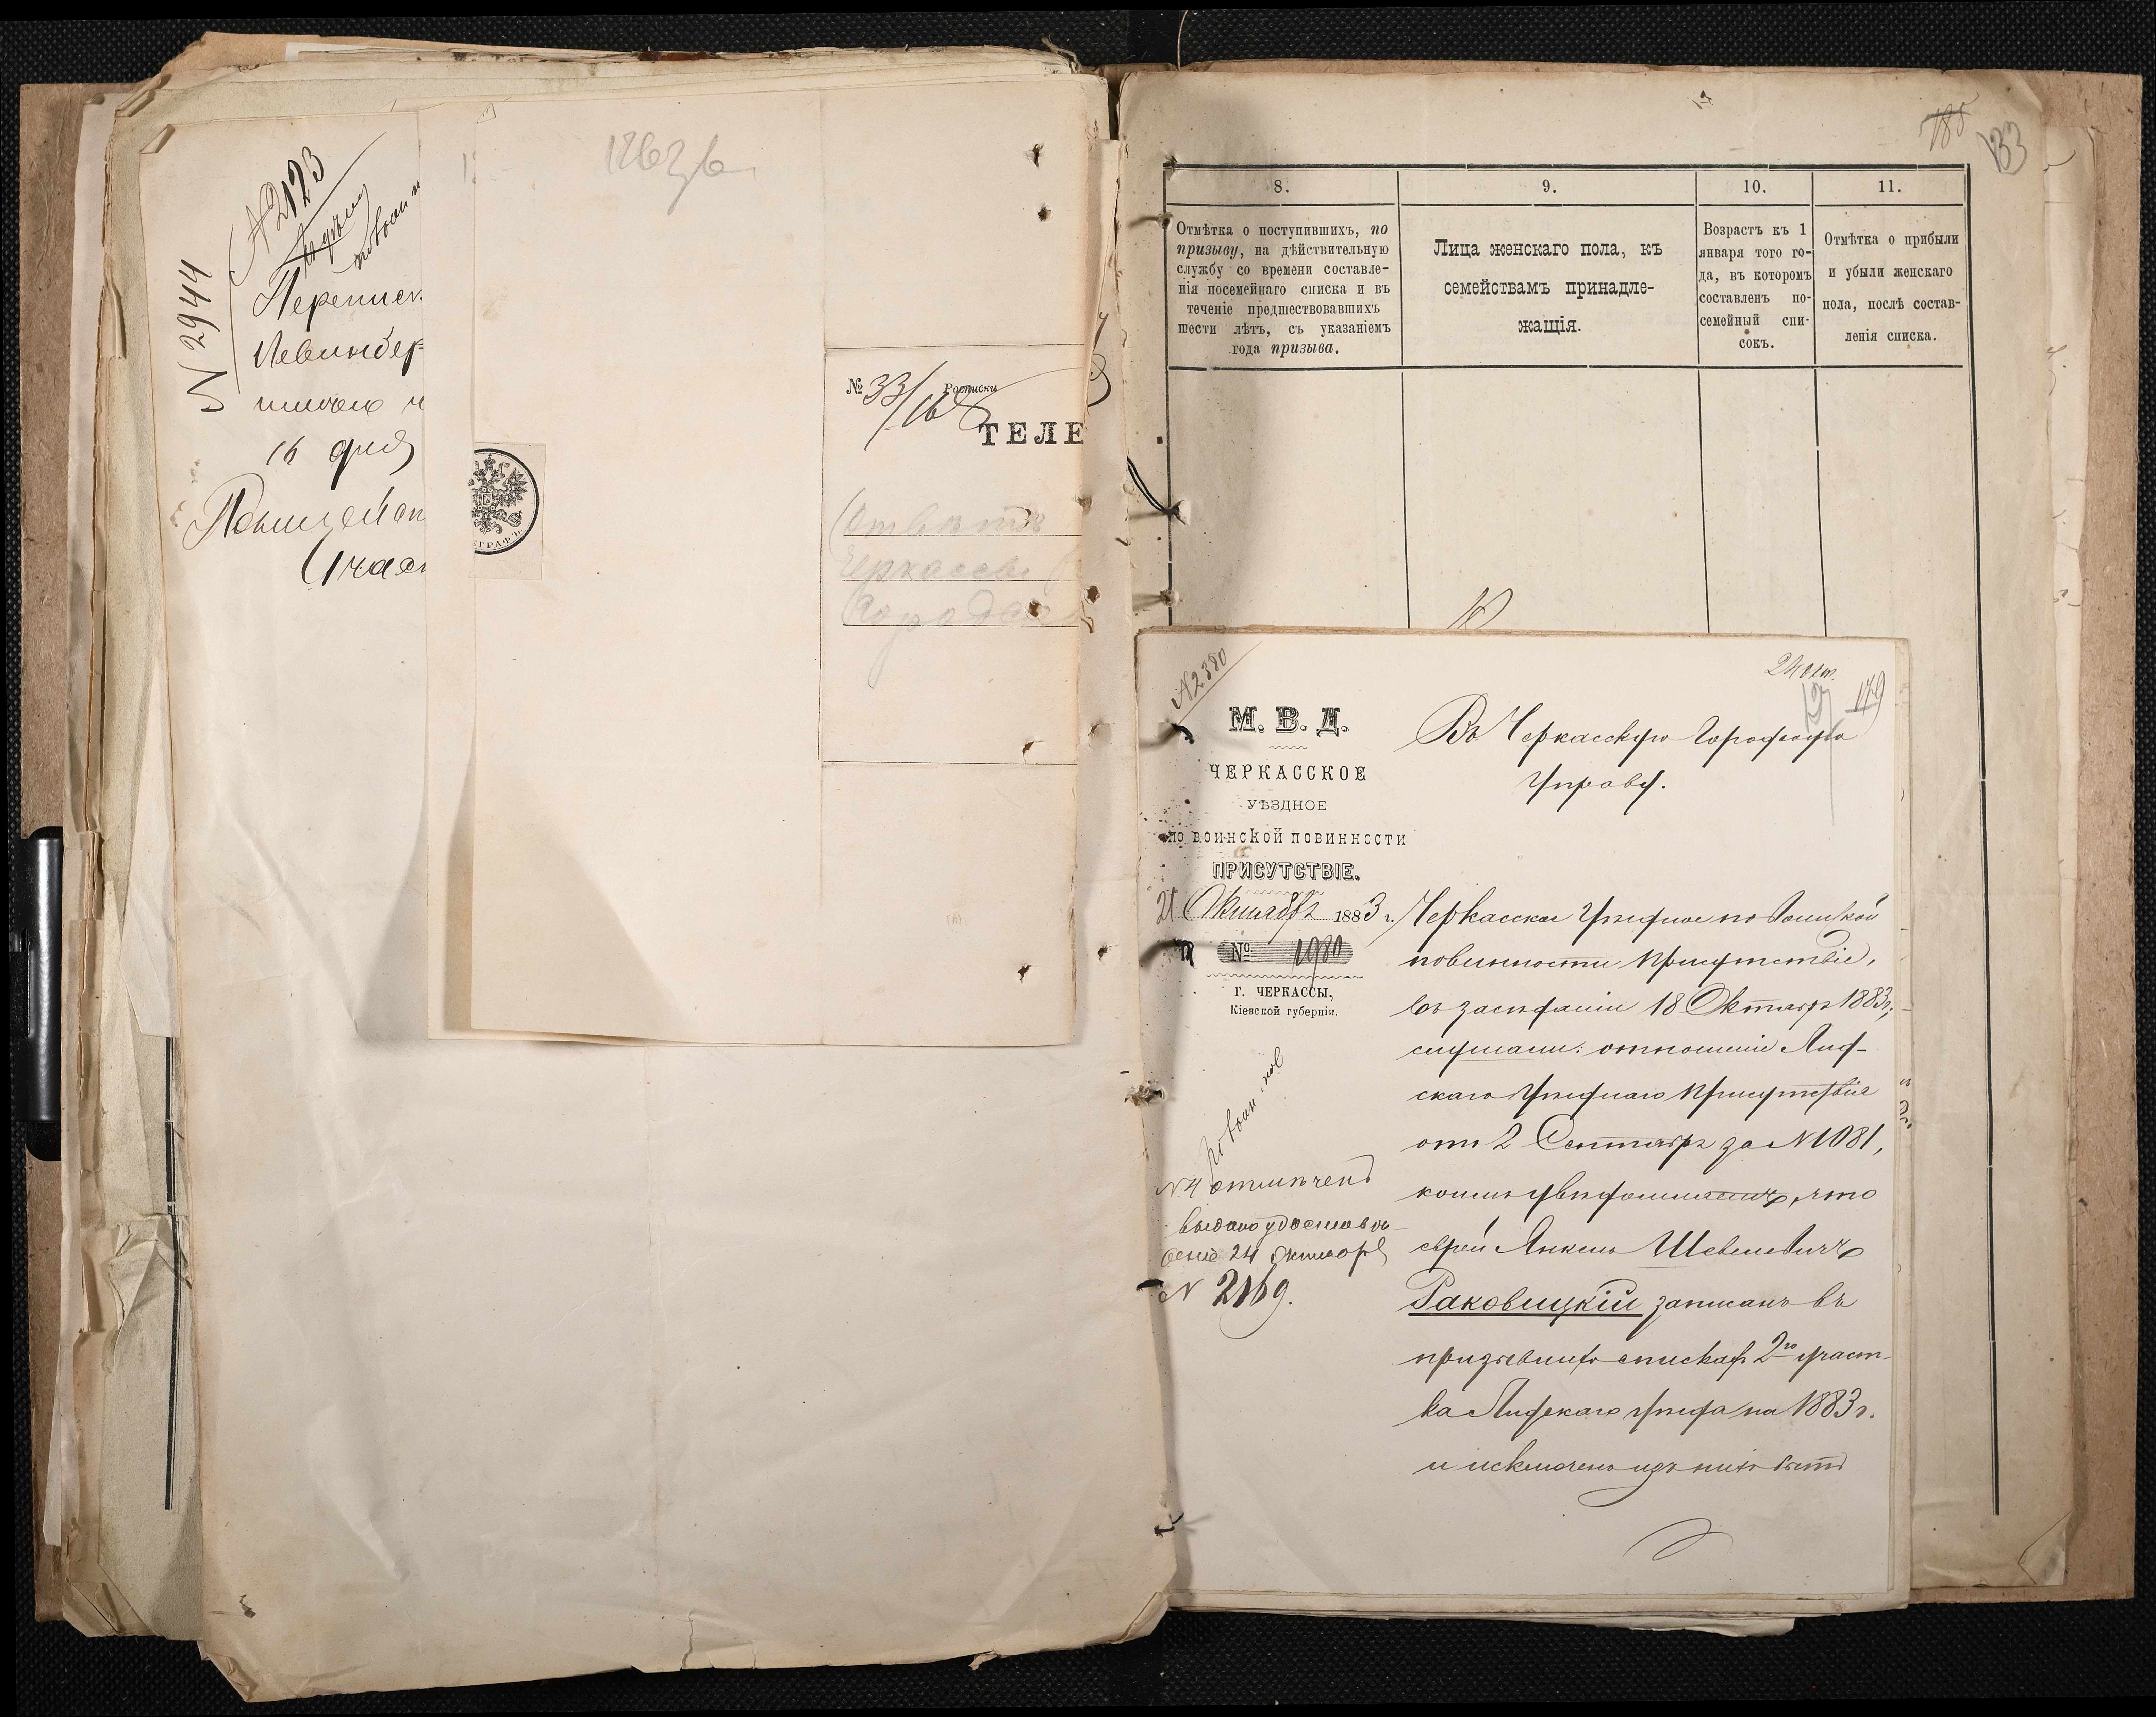 N 2944
N 2123
Переписк
Левинбер
16 дня
Полицейск
Участ
1263/6
№ 33/16 Росписки
ТЕЛЕ
Ответъ
Черкассы
Город
ЕГРАФЪ
185
133
8.
9.
10.
11.
Отмѣтка о поступившихъ, по
призыву, на дѣйствительную
службу со времени составле-
нія посемейнаго списка и въ
теченіе предшествовавшихъ
шести лѣтъ, съ указаніемъ
года призыва.
Лица женскаго пола, къ
семействамъ принадле-
жащія.
Возрастъ къ 1
января того го-
да, въ которомъ
составленъ по-
семейный спи-
сокъ.
Отмѣтка о прибыли
и убыли женскаго
пола, послѣ состав-
ленія списка.
N 2380
179
М. В. Д.
ЧЕРКАССКОЕ
УѢЗДНОЕ
по воинской повинности
ПРИСУТСТВІЕ.
21 Октября 1883 г.
№ 1980
Г. ЧЕРКАССЫ,
Кіевской губерніи.
Въ Черкасскую Городскую
Управу.
Черкасское Уѣздное по Воинской
повинности Присутствіе,
въ засѣданіи 18 Октября 1883 г.,
слушали: отношеніе Лид-
скаго Уѣзднаго Присутствія
отъ 2 Сентября за N 1081,
коимъ увѣдомляетъ, что
еврей Янкель Шевелевичъ
Раковицкій записанъ въ
призывныхъ спискахъ 2го участ-
ка Лидскаго уѣзда на 1883 г.
и исключенъ изъ нихъ быть
N 4 отмѣчено
выдано удостовѣ-
реніе 24 октября
N 2169.